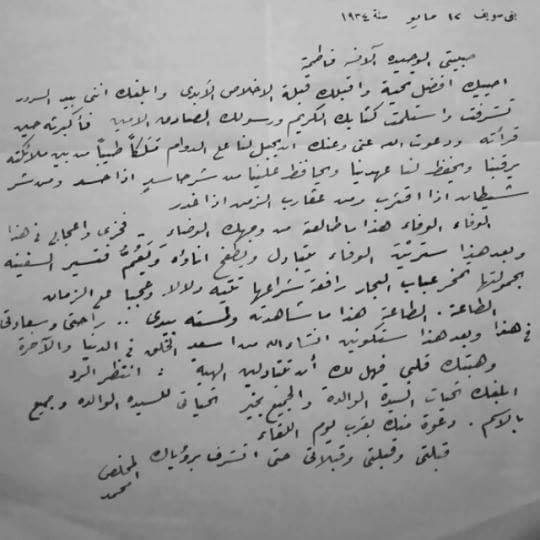 بنى سويف ١٢ مايو سنة ١٩٣٤
حبيبتى الوحيده الآنسه فاطمة
احييك افضل تحية واقبلك قبلة الاخلاص الأبدى وابلغك انى بيد السرور
تشرفت واستلمت كتابك الكريم ورسولك الصادق الامين فأكبرته حين
قرأته ودعوت الله عنى وعنك ان يجعل لنا على الدوام مَلَكاً طيباً من بين ملائكته
يرقبنا ويحفظ لنا عهدنا ويحافظ علينا من شر حاسد اذا حسد ومن شر
شيطان اذا اقترب ومن عقارب الزمن اذا غدر
الوفاء الوفاء هذا ما طالعته من وجهك الوضاء - فخرى واعجابى فى هذا
وبعد هذا سترين الوفاء يتبادل ويطفح اناؤه فتسير السفينه
بحمولتها تمخر عباب البحار رافعة شراعها تيه ودلالا وعجبا على الزمان
الطاعة. الطاعة هذا ما شاهدته ولمسته بيدى .. راحتى وسعادتى
فى هذا وبعد هذا ستكونين انشاء الله من اسعد الخلق فى الدنيا والآخرة
وهبتك قلبى فهل لك أن تتبادلين الهبة : انتظر الرد
ابلغك تحيات السيدة الوالدة والجميع بخير تحياتى للسيده الوالده وجميع
بالاسم. دعوة منك بقرب يوم اللقاء
قبلتى وقبلتى وقبلاتى حتى اتشرف برؤياك المخلص
محمد